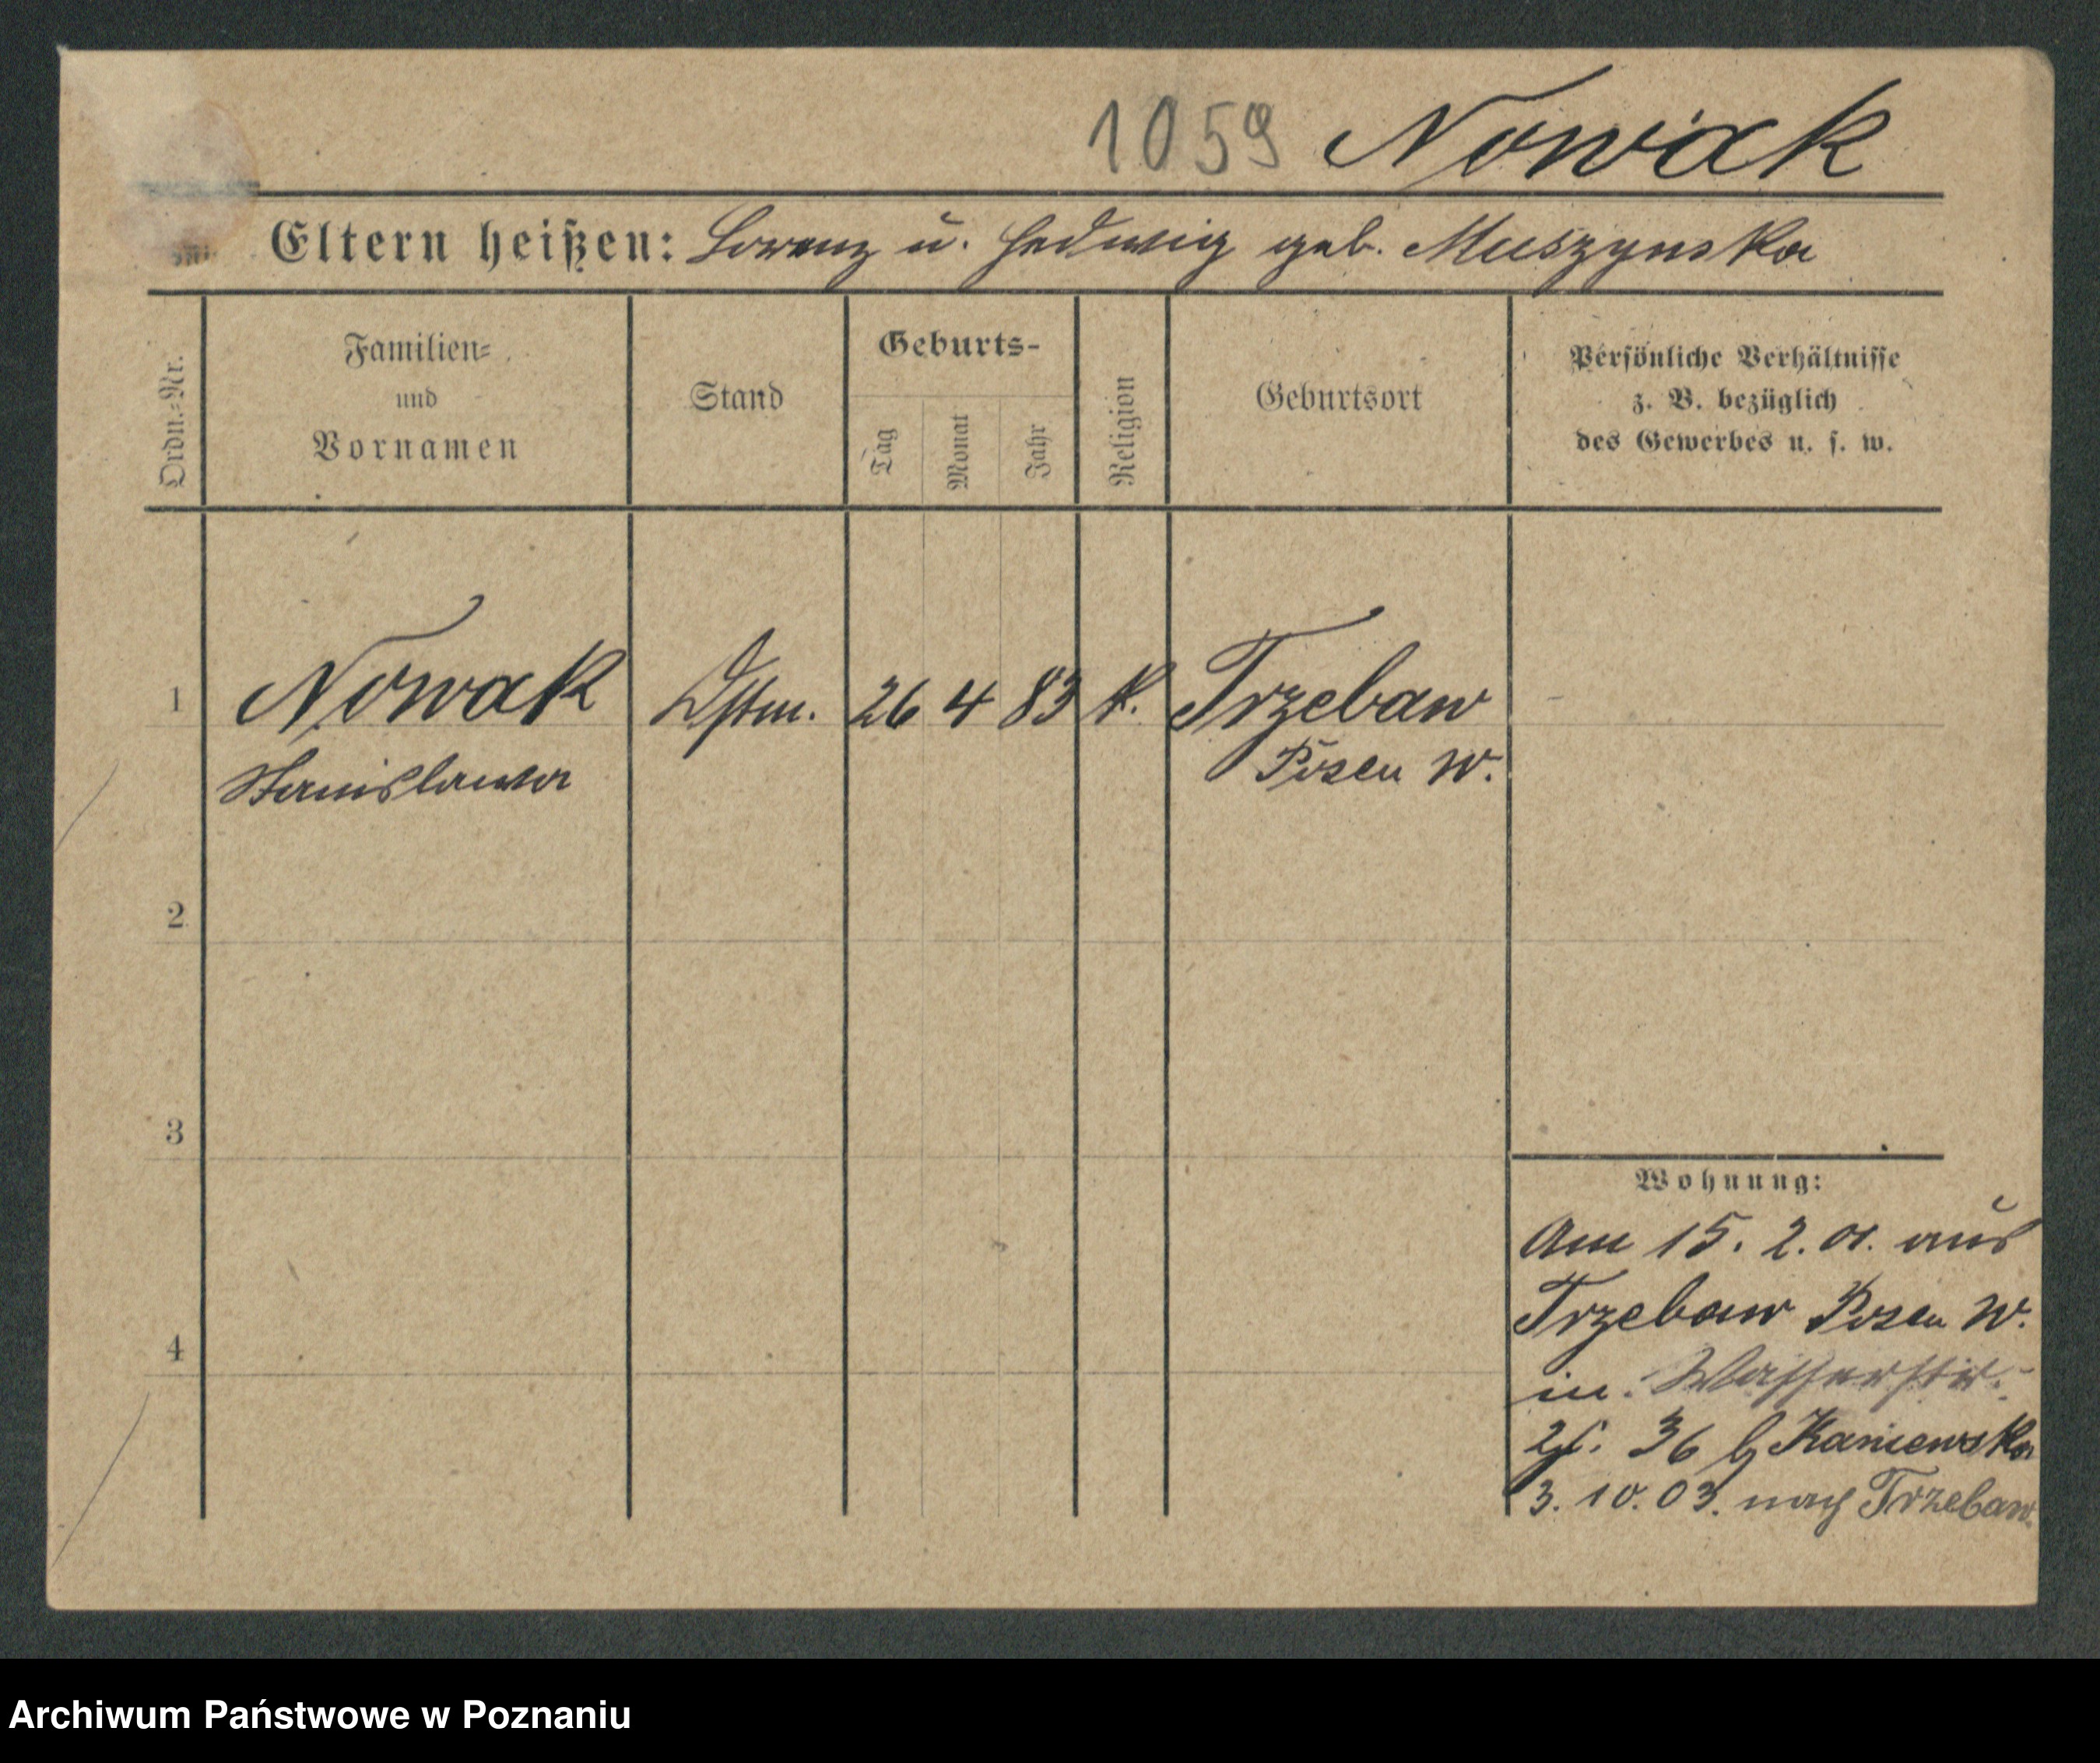 1059 Nowak
Eltern heißen: Lorenz u. Hedwig geb. Muszynska
Ordn.-Nr.
Familien-
und
Vornamen
Stand
Geburts-
Tag
Monat
Jahr
Religion
Geburtsort
Persönliche Verhältnisse
z. B. bezüglich
des Gewerbes u. s. w.
1 Nowak Dstm. 26 4 83 K. Trzebaw
Stanislawa Posen W.
2
3
Wohnung:
Am 15. 2. 01. aus
Trzebaw Posen W.
4
in. Wasserstr.
36 b Kaniewska
3. 10. 03. nach Trzebaw.
Archiwum Państwowe w Poznaniu